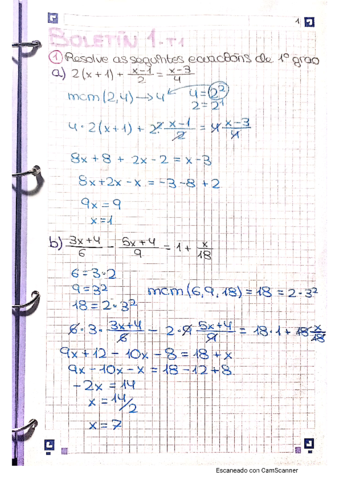 1
BOLETÍN 1-T1
① Resolve as seguintes ecuacións de 1º grao
a) 2(x+1) + x-1/2 = x-3/4
mcm (2,4) → 4 4=2²
2=2¹
4·2(x+1) + 2·2 x-1/2 = 4 x-3/4
8x+8 + 2x-2 = x-3
8x+2x-x = -3-8+2
9x=9
x=1
b) 3x+4/6 - 5x+4/9 = 1 + x/18
6=3·2
9=3² mcm (6,9,18) = 18 = 2·3²
18=2·3²
6·3· 3x+4/6 - 2·9 5x+4/9 = 18·1 + 18 x/18
9x+12 - 10x-8 = 18+x
9x-10x-x = 18-12+8
-2x = 14
x = 14/2
x = 7
Escaneado con CamScanner